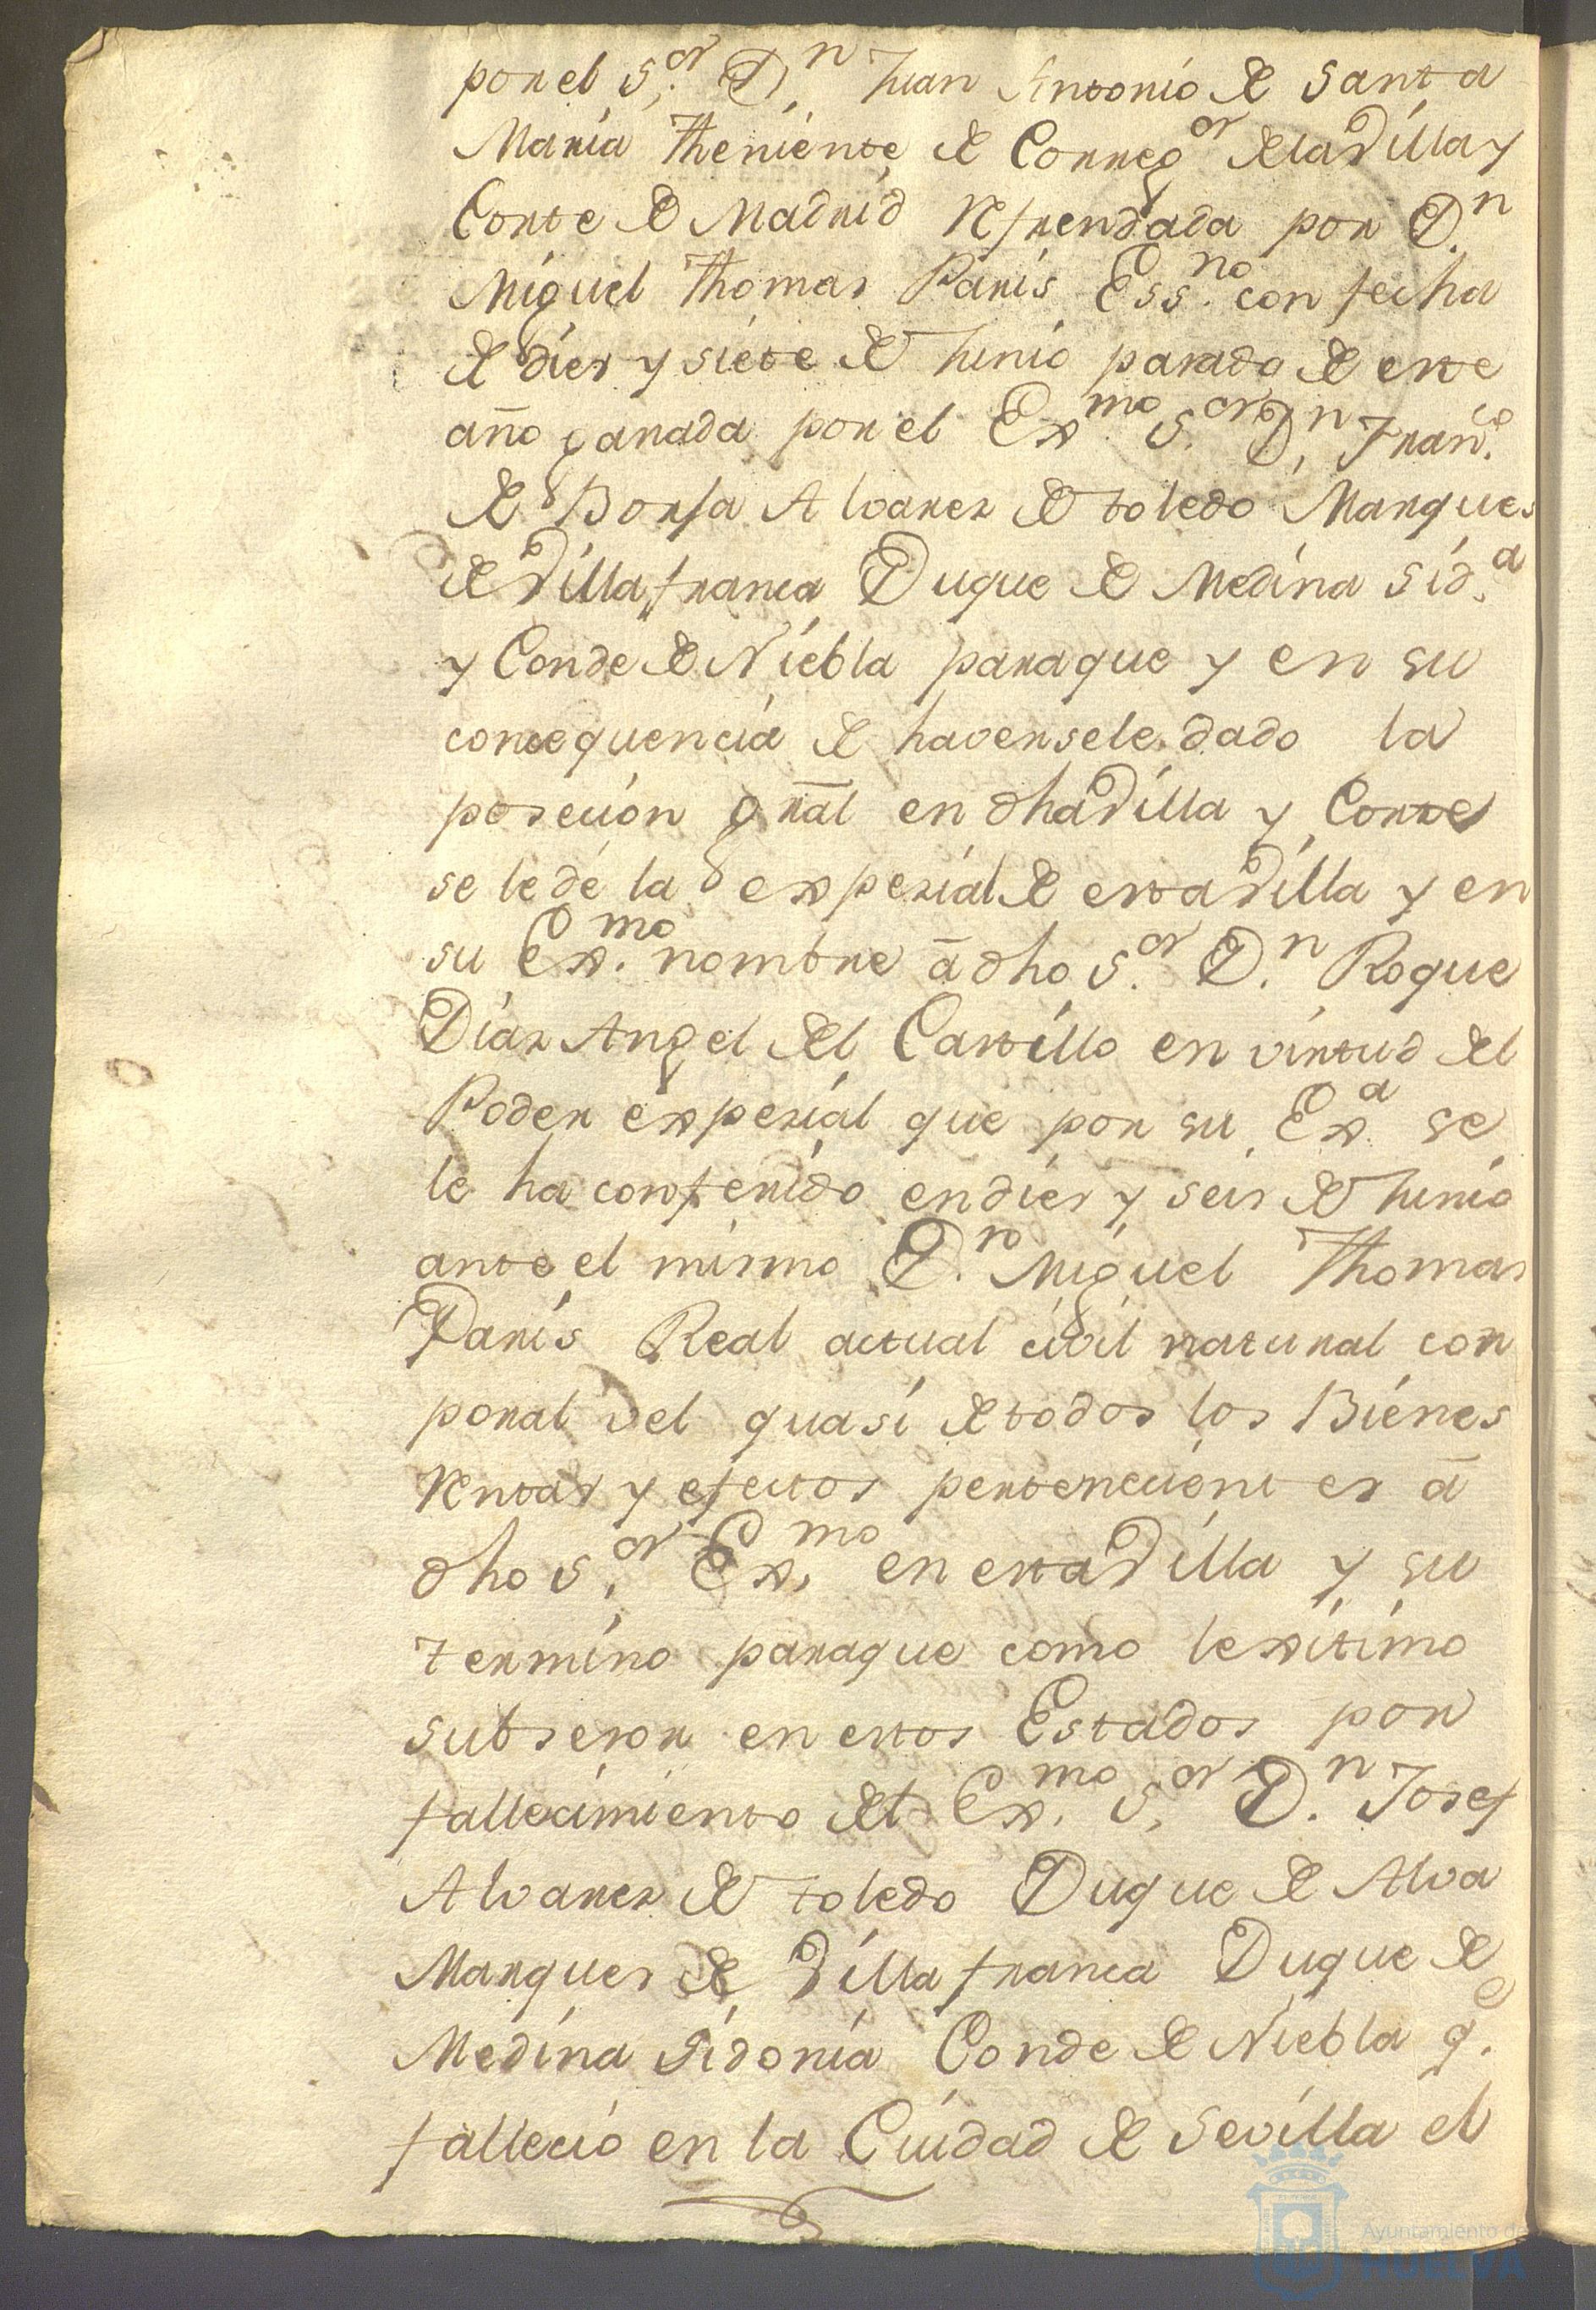 por el S.or D.n Juan Antonio de Santa
Maria Theniente de Correg.or de la Villa y
Corte de Madrid Refrendada por D.n
Miguel Thomas Paris Ess.no con fecha
de diez y siete de Junio pasado de este
año ganada por el Ex.mo S.or D.n Fran.co
de Borja Alvarez de toledo Marques
de Villafranca Duque de Medina Sid.a
y Conde de Niebla paraque y en su
consequencia de haversele dado la
posecion gral en dha Villa y Corte
se le dé la expezial de esta Villa y en
su Ex.mo nombre á dho S.or D.n Roque
Diaz Angel del Castillo en virtud del
Poder expezial que por su Ex.a se
le ha conferido en diez y seis de Junio
ante el mismo D.n Miguel Thomas
Paris Real actual civil natural cor
poral vel quasi de todos los Bienes
Rentas y efectos pertenecientes á
dho S.or Ex.mo en esta Villa y su
termino paraque como lexitimo
subsesor en estos Estados por
fallecimiento del Ex.mo S.or D.n Josef
Alvarez de toledo Duque de Alva
Marques de Villafranca Duque de
Medina Sidonia Conde de Niebla q.e
fallecio en la Ciudad de Sevilla el
Ayuntamiento de
HUELVA